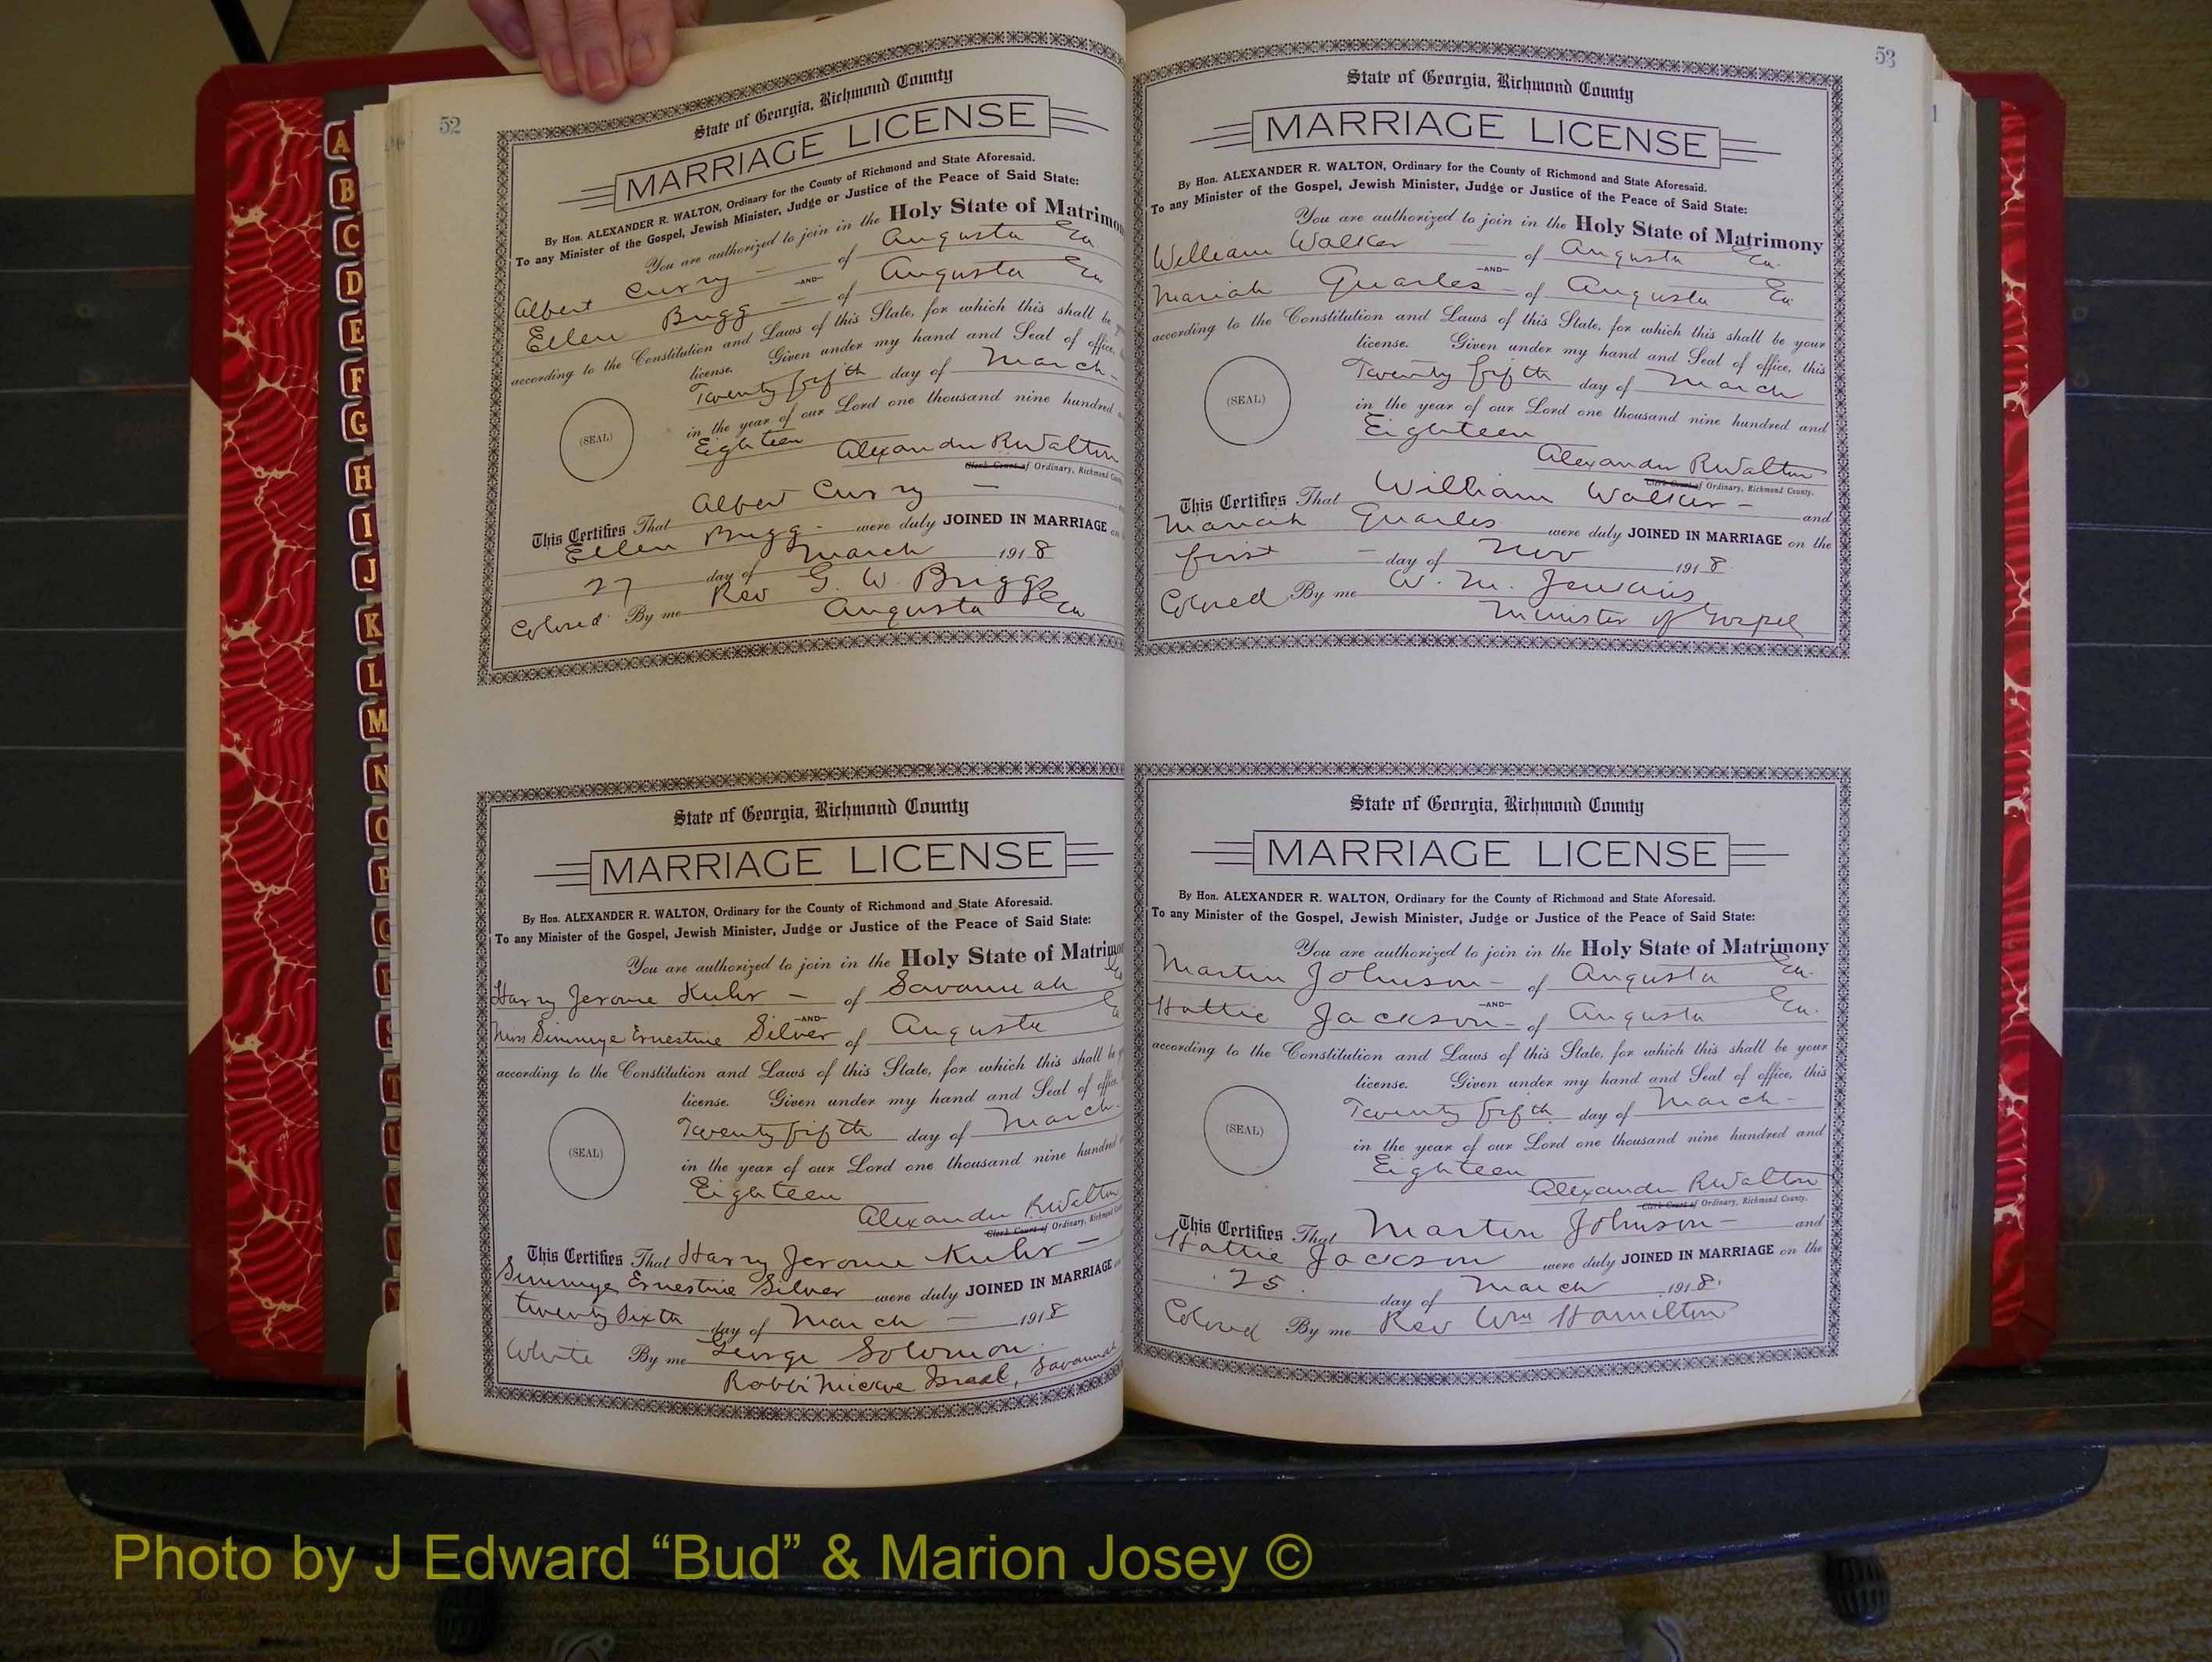 52
State of Georgia, Richmond County
MARRIAGE LICENSE
By Hon. ALEXANDER R. WALTON, Ordinary for the County of Richmond and State Aforesaid.
To any Minister of the Gospel, Jewish Minister, Judge or Justice of the Peace of Said State:
You are authorized to join in the Holy State of Matrimo
Albert Curry — of Augusta Ga
—AND—
Ellen Bugg — of Augusta Ga
according to the Constitution and Laws of this State, for which this shall be
license. Given under my hand and Seal of office,
Twenty fifth day of March -
(SEAL)
in the year of our Lord one thousand nine hundred
Eighteen
Alexander R Walton
Clerk Court of Ordinary, Richmond
This Certifies That Albert Curry —
Ellen Bugg - were duly JOINED IN MARRIAGE
27 day of March 1918
Colored By me Rev G. W. Briggs
Augusta Ga
State of Georgia, Richmond County
MARRIAGE LICENSE
By Hon. ALEXANDER R. WALTON, Ordinary for the County of Richmond and State Aforesaid.
To any Minister of the Gospel, Jewish Minister, Judge or Justice of the Peace of Said State:
You are authorized to join in the Holy State of Matrimo
Harry Jerome Kuhr — of Savannah
—AND—
Miss Simmye Ernestine Silver of Augusta
according to the Constitution and Laws of this State, for which this shall be
license. Given under my hand and Seal of office.
Twenty fifth day of March.
(SEAL)
in the year of our Lord one thousand nine hundred
Eighteen
Alexander R Walton
Clerk Court of Ordinary, Richmond
This Certifies That Harry Jerome Kuhr —
Simmye Ernestine Silver were duly JOINED IN MARRIAGE
twenty Sixth day of March — 1918
White By me George Solomon
Rabbi Mickve Israel, Savannah
53
State of Georgia, Richmond County
MARRIAGE LICENSE
By Hon. ALEXANDER R. WALTON, Ordinary for the County of Richmond and State Aforesaid.
To any Minister of the Gospel, Jewish Minister, Judge or Justice of the Peace of Said State:
You are authorized to join in the Holy State of Matrimony
William Walker — of Augusta Ga.
—AND—
Mariah Quarles — of Augusta Ga
according to the Constitution and Laws of this State, for which this shall be your
license. Given under my hand and Seal of office, this
Twenty fifth day of March
(SEAL)
in the year of our Lord one thousand nine hundred and
Eighteen
Alexander R Walton
Clerk Court of Ordinary, Richmond County.
This Certifies That William Walker — and
Mariah Quarles were duly JOINED IN MARRIAGE on the
first — day of Nov 1918.
Colored By me W. M. Jenkins
Minister of Gospel
State of Georgia, Richmond County
MARRIAGE LICENSE
By Hon. ALEXANDER R. WALTON, Ordinary for the County of Richmond and State Aforesaid.
To any Minister of the Gospel, Jewish Minister, Judge or Justice of the Peace of Said State:
You are authorized to join in the Holy State of Matrimony
Martin Johnson — of Augusta Ga.
—AND—
Hattie Jackson — of Augusta Ga.
according to the Constitution and Laws of this State, for which this shall be your
license. Given under my hand and Seal of office, this
Twenty fifth day of March —
(SEAL)
in the year of our Lord one thousand nine hundred and
Eighteen
Alexander R Walton
Clerk Court of Ordinary, Richmond County.
This Certifies That Martin Johnson — and
Hattie Jackson were duly JOINED IN MARRIAGE on the
25 day of March 1918.
Colored By me Rev Wm Hamilton
A
B
C
D
E
F
G
H
I
J
K
L
M
N
O
P
Photo by J Edward “Bud” & Marion Josey ©